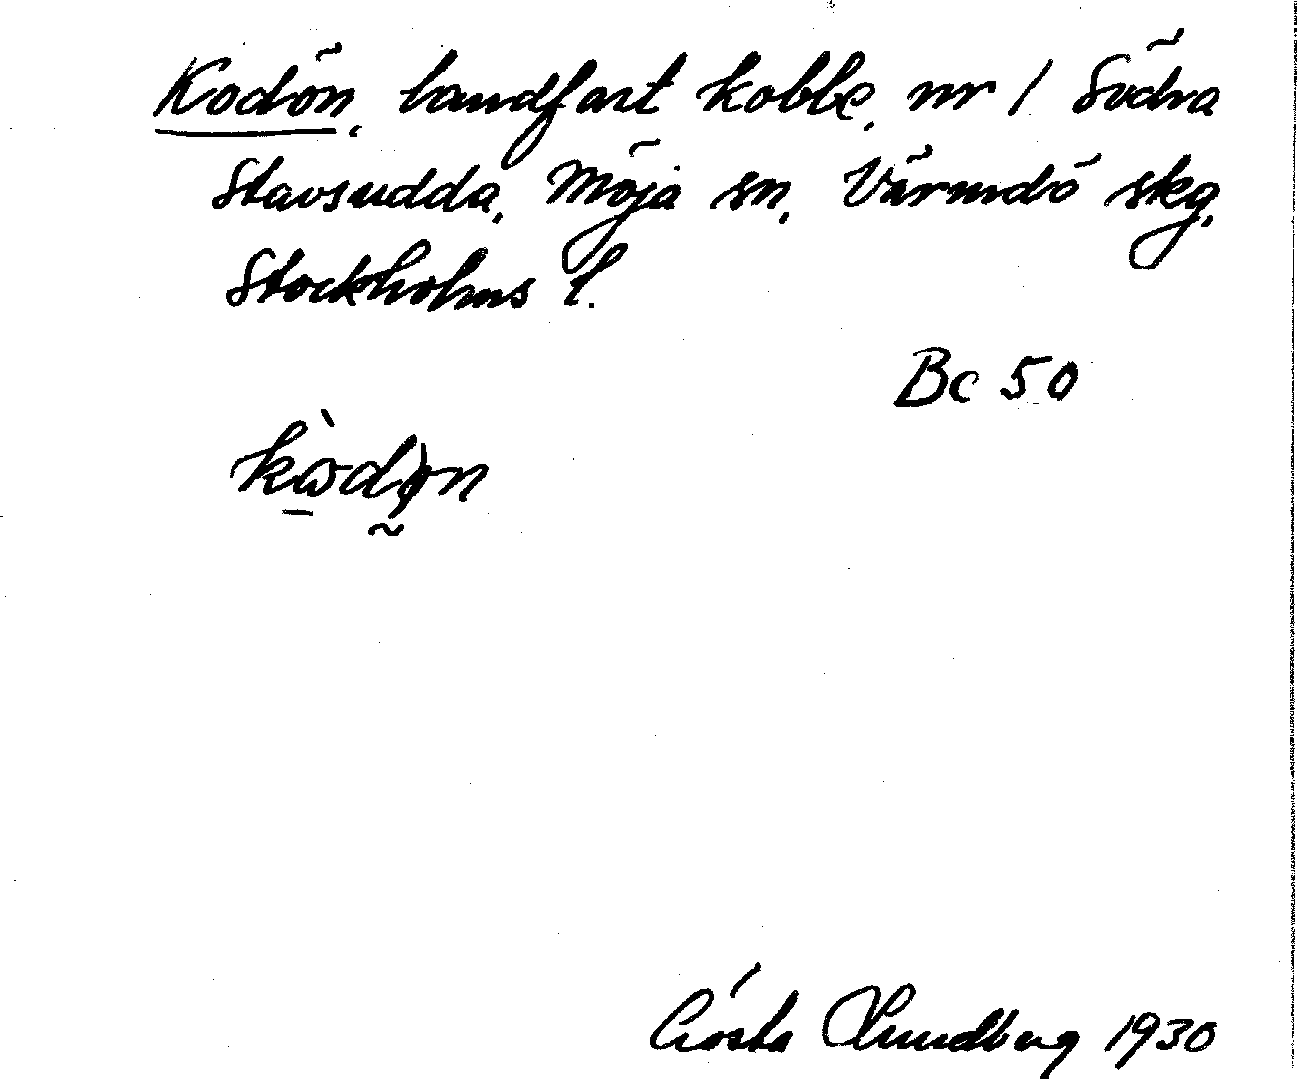 Kodön, landfast kobbe, nr 1 Södra
Stavsudda, Möja sn, Värmdö skg,
Stockholms l.
Bc 50
kωdøn
Gösta Lundberg 1930